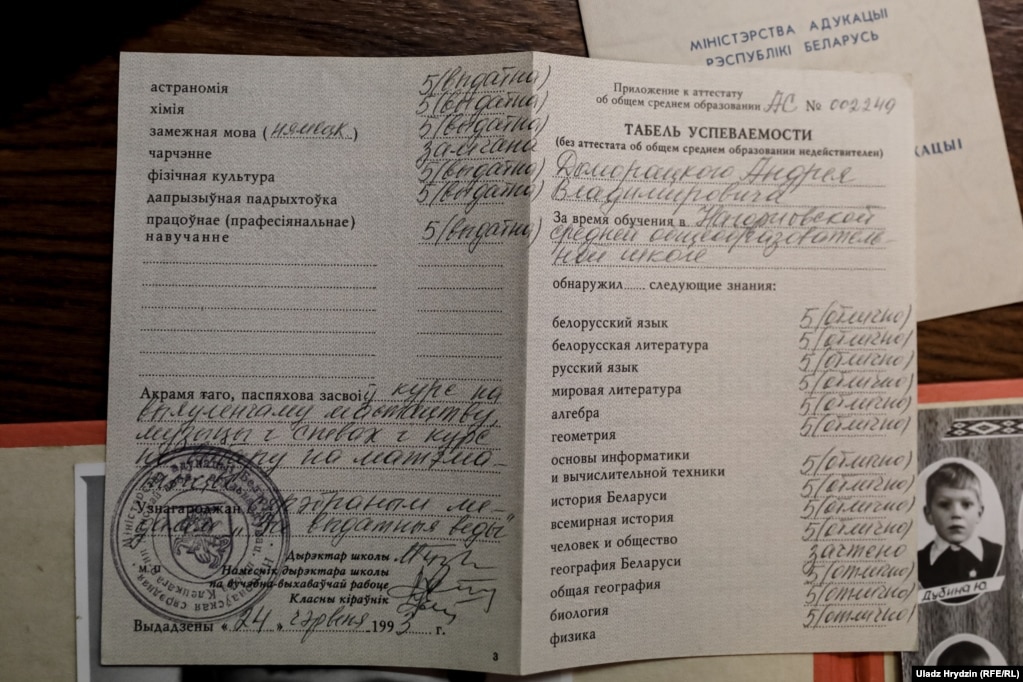 МІНІСТЭРСТВА АДУКАЦЫІ
РЭСПУБЛІКІ БЕЛАРУСЬ
КАЦЫІ
астраномія 5 (выдатна)
хімія 5 (выдатна)
замежная мова ( нямецк. ) 5 (выдатна)
чарчэнне залічана
фізічная культура 5 (выдатна)
дапрызыўная падрыхтоўка 5 (выдатна)
працоўнае (прафесіянальнае)
навучанне 5 (выдатна)
Акрамя таго, паспяхова засвоіў курс па
выяуленчаму мастацтву,
музыцы і спевах і курс
па матэма-
Узнагароджан сярэбраным ме-
далем „За выдатныя веды"
Дырэктар школы
Намеснік дырэктара школы
па вучэбна-выхаваўчай рабоце
Класны кіраўнік
М П
Выдадзены « 24 » чэрвеня 1993 г.
3
Приложение к аттестату
об общем среднем образовании АС № 002249
ТАБЕЛЬ УСПЕВАЕМОСТИ
(без аттестата об общем среднем образовании недействителен)
Доморацкого Андрея
Владимировича
За время обучения в Нагорновской
средней общеобразователь-
ной школе
обнаружил...... следующие знания:
белорусский язык 5 (отлично)
белорусская литература 5 (отлично)
русский язык 5 (отлично)
мировая литература 5 (отлично)
алгебра 5 (отлично)
геометрия 5 (отлично)
основы информатики
и вычислительной техники 5 (отлично)
история Беларуси 5 (отлично)
всемирная история 5 (отлично)
человек и общество 5 (отлично)
география Беларуси зачтено
общая география 5 (отлично)
биология 5 (отлично)
физика 5 (отлично)
Дубина Ю.
Uladz Hrydzin (RFE/RL)